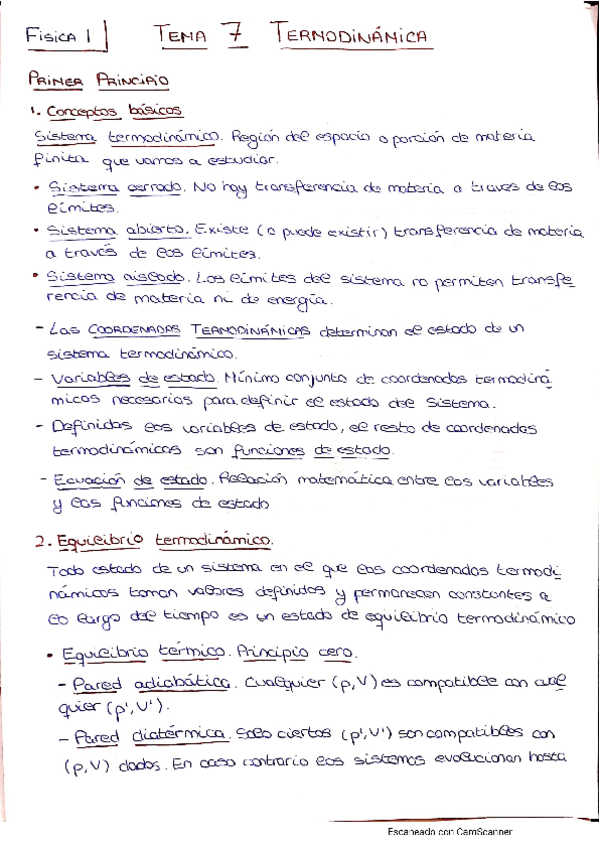 FÍSICA 1 TEMA 7 TERMODINÁMICA
PRIMER PRINCIPIO
1. Conceptos básicos
Sistema termodinámico. Región del espacio o porción de materia
finita que vamos a estudiar.
• Sistema cerrado. No hay transferencia de materia a traves de los
límites.
• Sistema abierto. Existe (o puede existir) transferencia de materia
a través de los límites.
• Sistema aislado. Los límites del sistema no permiten transfe
rencia de materia ni de energía.
- Las COORDENADAS TERMODINÁMICAS determinan el estado de un
sistema termodinámico.
- Variables de estado. Mínimo conjunto de coordenadas termodiná
micas necesarios para definir el estado del sistema.
- Definidas las variables de estado, el resto de coordenadas
termodinámicas son funciones de estado.
- Ecuación de estado. Relación matemática entre las variables
y las funciones de estado
2. Equilibrio termodinámico.
Todo estado de un sistema en el que las coordenadas termodi
námicas toman valores definidos y permanecen constantes a
lo largo del tiempo es un estado de equilibrio termodinámico
• Equilibrio térmico. Principio cero.
- Pared adiabática. Cualquier (p,V) es compatible con cual
quier (p',V').
- Pared diatérmica. Solo ciertos (p',V') son compatibles con
(p,V) dados. En caso contrario los sistemas evolucionan hasta
Escaneado con CamScanner